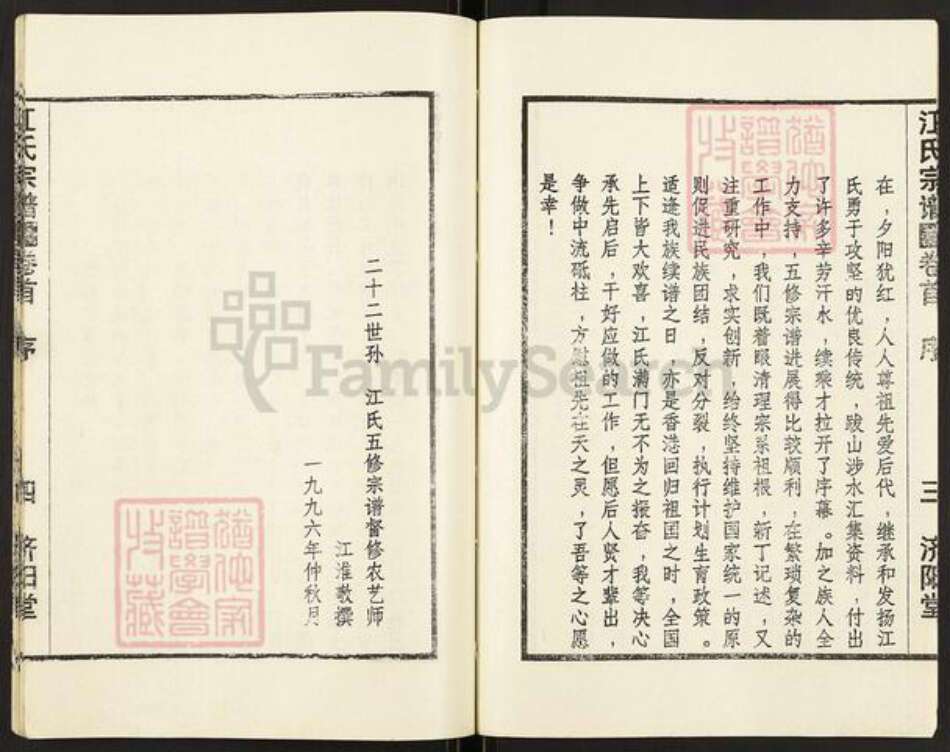 江氏宗谱 卷首 序 三 济阳堂
在，夕阳犹红，人人尊祖先爱后代，继承和发扬江
氏勇于攻坚的优良传统，跋山涉水汇集资料，付出
了许多辛劳汗水，续乘才拉开了序幕。加之族人全
力支持，五修宗谱进展得比较顺利，在繁琐复杂的
工作中，我们既着眼清理宗系祖根，新丁记述，又
注重研究，求实创新，始终坚持维护国家统一的原
则促进民族团结，反对分裂，执行计划生育政策。
适逢我族续谱之日，亦是香港回归祖国之时，全国
上下皆大欢喜，江氏满门无不为之振奋，我等决心
承先启后，干好应做的工作，但愿后人贤才辈出，
争做中流砥柱，方慰祖先在天之灵，了吾等之心愿
是幸！
二十二世孙 江氏五修宗谱督修农艺师
江淮敬撰
一九九六年仲秋月
江氏宗谱 卷首 序 四 济阳堂
FamilySearch
犹他家
谱学会
收藏
犹他家
谱学会
收藏